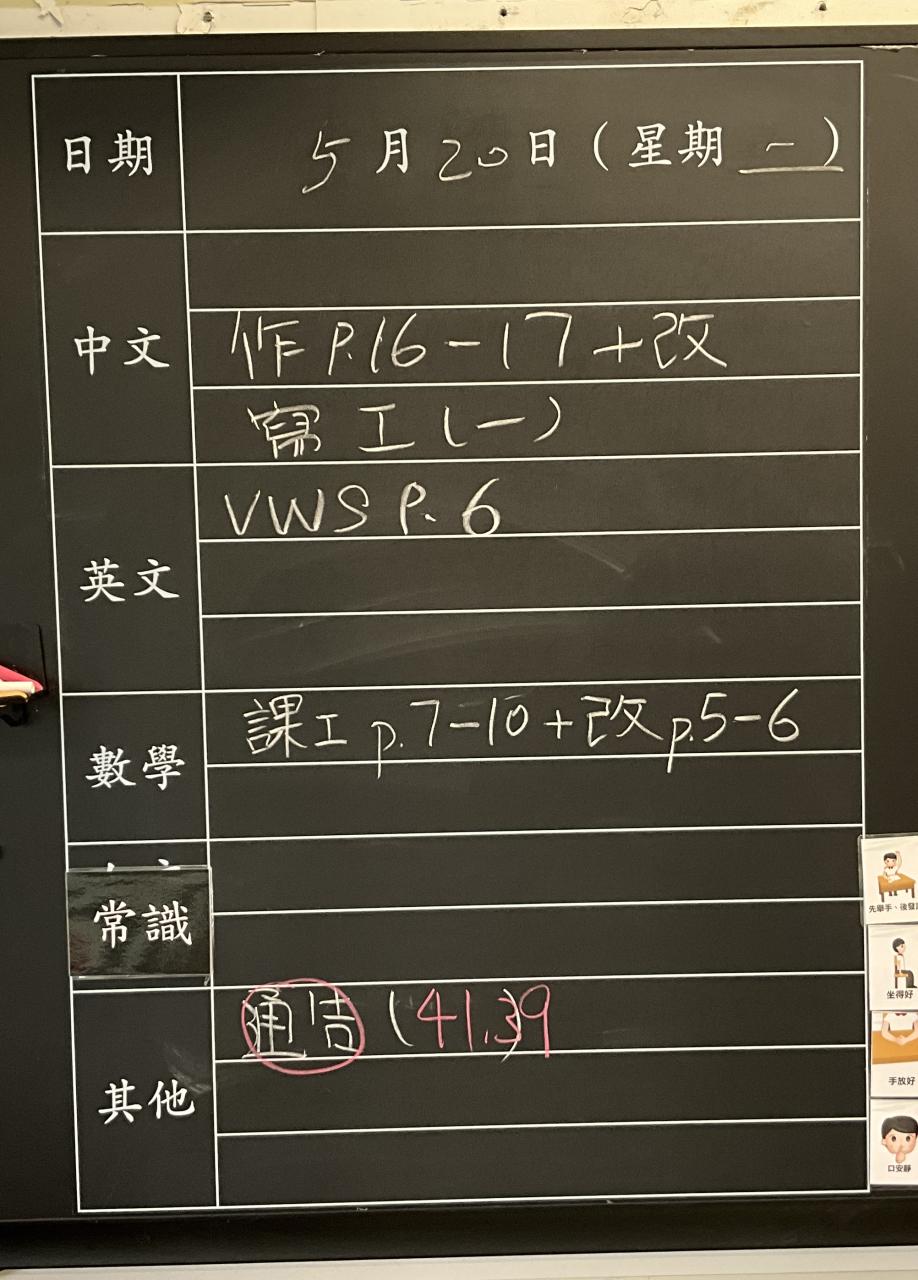 日期 5月20日(星期一)
中文
作 P.16-17+改
寫工(一)
英文
VWS P.6
數學
課工 p.7-10+改 p.5-6
常識
其他
通告 (41,39
先舉手、後發
坐得好
手放好
口安靜